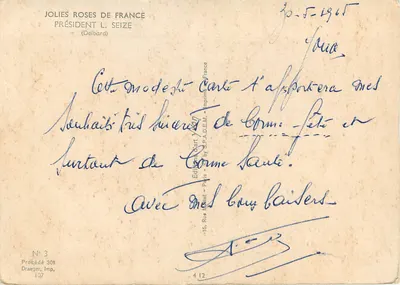 JOLIES ROSES DE FRANCE
PRÉSIDENT L. SEIZE
(Delbard)
Cette modeste carte t'apportera mes
souhaits très sincères de bonne fête et
surtout de bonne santé.
avec mes bons baisers
N° 3
Draeger, Imp.
412